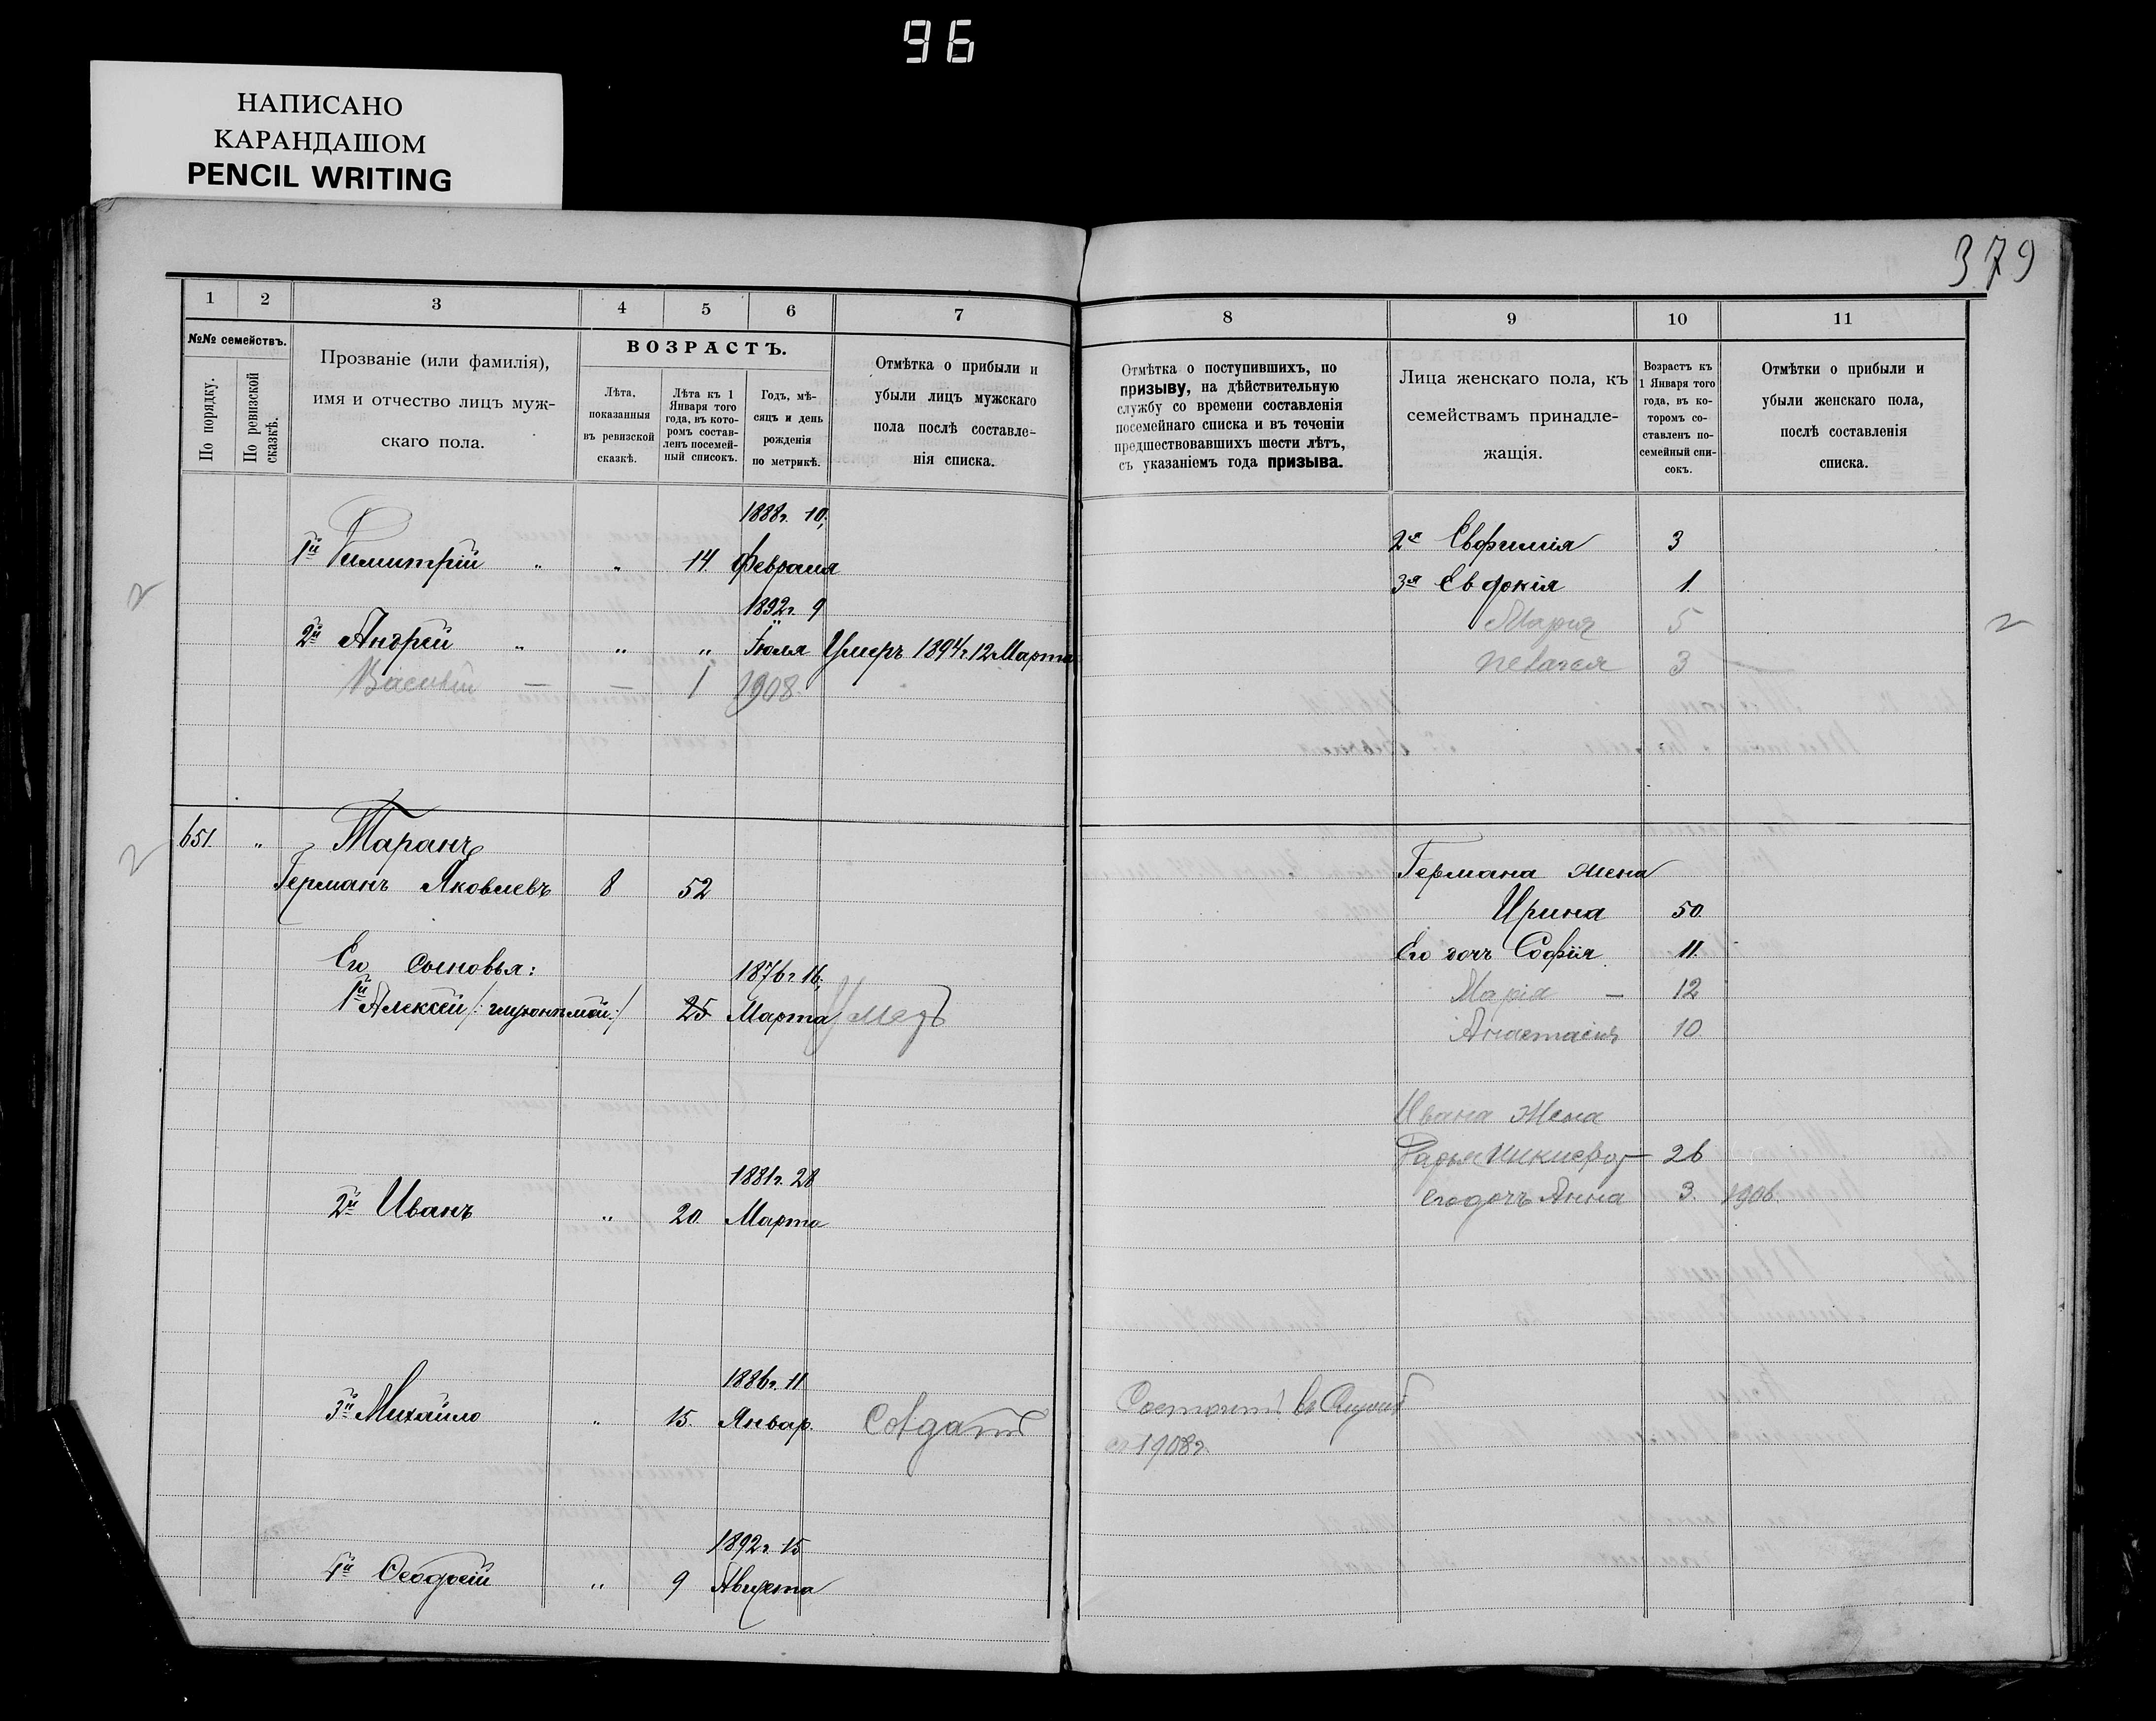 96
НАПИСАНО
КАРАНДАШОМ
PENCIL WRITING
379
1
2
3
4
5
6
7
№№ семействъ.
По порядку.
По ревизской сказкѣ.
Прозваніе (или фамилія),
имя и отчество лицъ муж-
скаго пола.
ВОЗРАСТЪ.
Лѣта,
показанныя
въ ревизской
сказкѣ.
Лѣта къ 1
Января того
года, въ кото-
ромъ состав-
ленъ посемей-
ный списокъ.
Годъ, мѣ-
сяцъ и день
рожденія
по метрикѣ.
Отмѣтка о прибыли и
убыли лицъ мужскаго
пола послѣ составле-
нія списка.
1888г. 10,
1й Димитрій „ „ 14 Февраля
1892г. 9
2й Андрей „ „ „ Іюля Умеръ 1894г 12 Марта
Василій — — 1 1908
2
651. „ Таранъ
2
Германъ Яковлевъ 8 52
Его сыновья: 1876г 16,
1й Алексѣй /: глухонѣмой :/ 25 Марта Умеръ
1881г. 28
2й Иванъ „ 20 Марта
1886г. 11
3й Михайло „ 15. Январ. Солдатъ
1892г. 15
4й Ѳеодосій „ 9 Августа
8
9
10
11
Отмѣтка о поступившихъ, по
призыву, на дѣйствительную
службу со времени составленія
посемейнаго списка и въ теченіи
предшествовавшихъ шести лѣтъ,
съ указаніемъ года призыва.
Лица женскаго пола, къ
семействамъ принадле-
жащія.
Возрастъ къ
1 Января того
года, въ ко-
торомъ со-
ставленъ по-
семейный спи-
сокъ.
Отмѣтки о прибыли и
убыли женскаго пола,
послѣ составленія
списка.
2я Евфимія 3
3я Евдокія 1.
Марія 5
3
2
Германа жена
Ирина 50.
Его дочь Софія 11.
Марія — 12
Анастасія 10
Ивана жена
Дарья 26
его дочь Анна 3. 1906.
Состоитъ въ
съ 1908г.